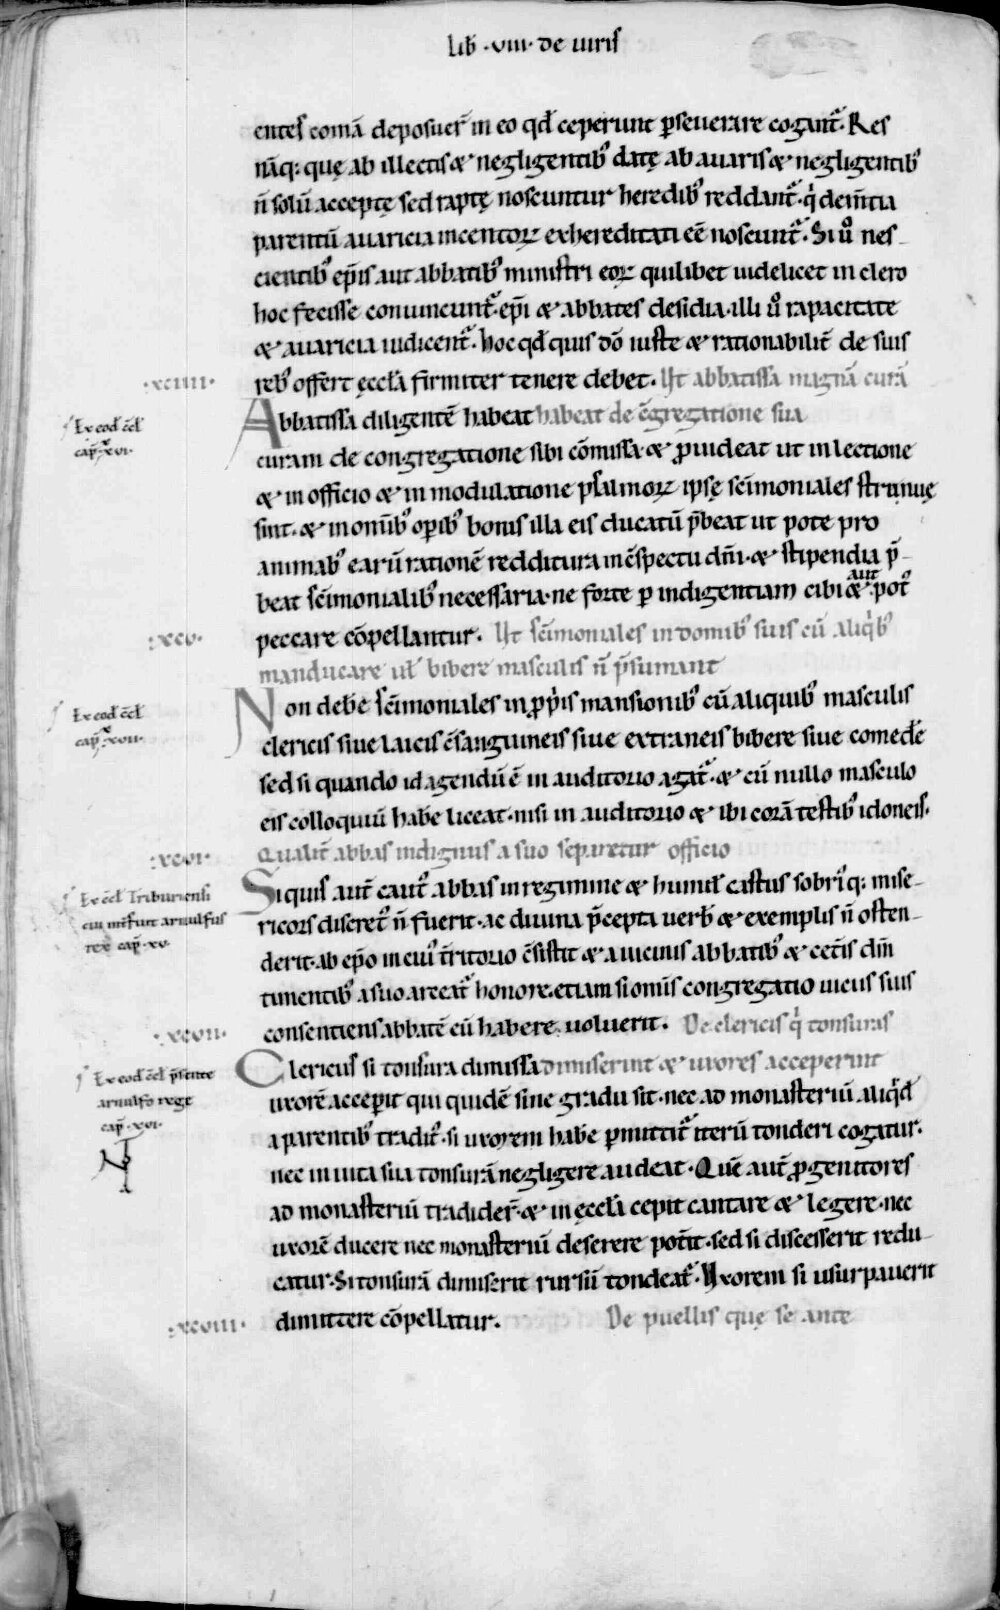 Lib̄ ·viii· de viris
entes comā deposuer̄ in eo qd̄ ceperunt ꝑseuerare cogant᷑. Res
nāq; quę ab illectis & negligentib; datę ab auaris & negligentib;
n̄ solū acceptę sed raptę noscuntur heredib; reddant᷑. q̇ dem̄tia
parentū auaricia incentoꝝ exhereditati eē noscunt᷑. Si ů nes-
cientib; ep̄is aut abbatib; ministri eoꝝ quilibet uidelicet in clero
hoc fecisse conuincunt᷑. ep̄i & abbates desidia. illi ů rapacitate
& auaricia iudicent᷑. hoc qd̄ quis dō iuste & rationabilit̄ de suis
·xciiii· reb; offert ęccła firmiter tenere debet. Ut abbatissa magnā curā
Abbatissa diligentē habeat habeat de c̄gregatione sua
Ex eod c̄cł cap̄. xvi.
curam de congregatione sibi cōmissa. & ꝓuideat ut in lectione
& in officio & in modulatione psalmoꝝ ipsę sc̄imoniales strenuę
sint. & in om̄ib; oꝑib; bonis illa eis ducatū p̄beat ut pote pro
animab; earū rationē redditura in c̄spectu dn̄i. & stipendia p̄-
beat sc̄imonialib; necessaria. ne forte ꝑ indigentiam cibi & aut pot᷒
·xcv· peccare cōpellantur. Ut sc̄imoniales in domib; suis cū aliq̇b;
manducare uł bibere masculis n̄ p̄sumant
Ex eod c̄cł cap̄. xvii.
Non debe̅ sc̄imoniales in ꝓṗis mansionib; cū aliquib; masculis
clericis siue laicis c̄sanguineis siue extraneis bibere siue comede̅
sed si quando id agendū ē in auditorio agat᷑. & cū nullo masculo
eis colloquiū habe̅ liceat. nisi in auditorio & ibi corā testib; idoneis.
·xcvi· Qualit̄ abbas indignus a suo separetur officio
Ex c̄cł Triburiensi cui int̄fuit arnulfus rex cap̄. xv.
Siquis aut̄ caut᷒ abbas in regimine & humił castus sobri᷒q; mise-
ricors discret᷒ n̄ fuerit. ac diuina p̄cepta uerb̄ & exemplis n̄ osten-
derit. ab ep̄o in cui᷒ t̄ritorio c̄sistit & a uicinis abbatib; & cet̄is dm̄
timentib; a suo arceat᷑ honore. etiam si om̄is congregatio uiciis suis
·xcvii· consentiens abbatē eū habere uoluerit. De clericis q̇ tonsuras
Clericus si tonsura dimissa dimiserint & uxores acceperint
Ex eod c̄cł p̄sente arnulfo rege cap̄. xvi.
uxorē acceꝑit qui quidē sine gradu sit. nec ad monasteriū aliq̇d
a parentib; tradit᷒. si uxorem habe̅ ꝑmittit᷑ iterū tonderi cogatur.
nec in uita sua tonsurā negligere audeat. Quē aut̄ ꝓgenitores
ad monasteriū tradider̄. & in ęccła cepit cantare & legere. nec
uxorē ducere nec monasteriū deserere pot̄it. sed si discesserit redu-
catur. Si tonsurā dimiserit rursū tondeat᷑. Uxorem si usurpauerit
·xcviii· dimittere cōpellatur. De puellis quę se ante